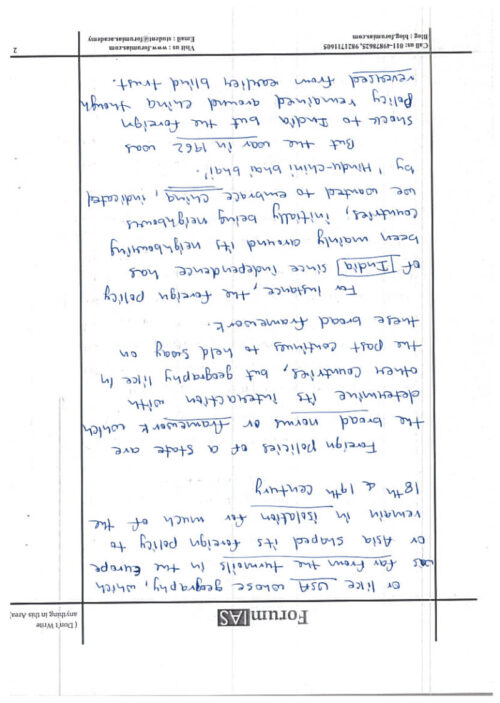 Forum IAS
( Don't Write
anything in this Area)
or like USA whose geography, which
was far from the turmoils in the Europe
or Asia shaped its foreign policy to
remain in isolation for much of the
18th & 19th century
Foreign policies of a state are
the broad norms or framework which
determine its interaction with
other countries, but geography like in
the past continues to held sway on
these broad framework.
For instance, the foreign policy
of India since independence has
been mainly around its neighbouring
countries, initially being neighbours
we wanted to embrace China, indicated
by 'Hindu-chini bhai bhai'.
But the war in 1962 was
shock to India but the foreign
policy remained around china though
reversed from earlier blind trust.
Call us: 011-49878625, 9821711605
Blog : blog.forumias.com
Visit us : www.forumias.com
Email : student@forumias.academy
2